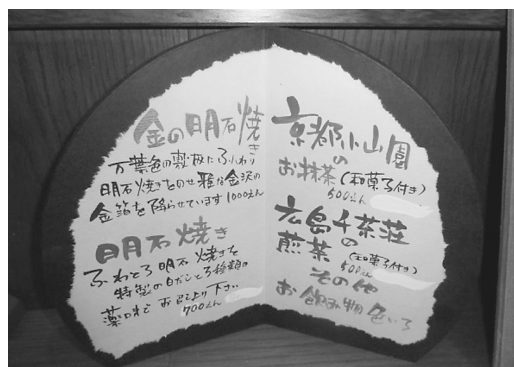 金の明石焼き
万葉色の敷板にふんわり
明石焼きをのせ雅な金沢の
金箔を降らせています 1000えん
明石焼き
ふわとろ明石焼きを
特製の白だしと3種類の
薬味で お召し上り下さい
700えん
京都小山園
の
お抹茶(和菓子付き)
500えん
広島千茶荘
の
煎茶(和菓子付き)
500えん
その他
お飲み物色いろ